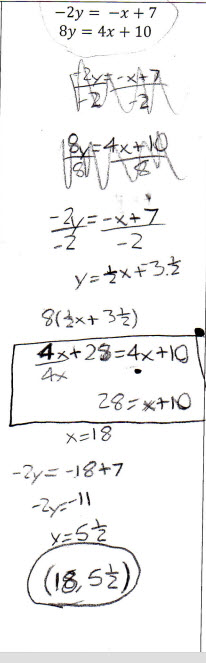 −2y = −x + 7
8y = 4x + 10
-2y = -x+7
-2 -2
8y = 4x+10
8 8
-2y = -x+7
-2 -2
y = ½x + 3½
8(½x + 3½)
4x+28=4x+10
4x
28=x+10
x=18
-2y = -18+7
-2y=-11
y=5½
(18, 5½)